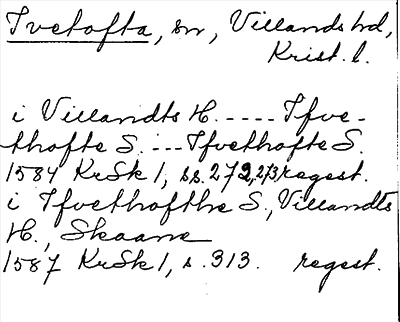 Ivetofta, sn, Villands hd,
Krist. l.
i Villandts H. ---- Ifve-
thofte S. --- Ifvethofte S.
1584 KrSk 1, s.s. 272, 273 regest.
i Ifvethofthe S., Villandts
H., Skaane
1587 KrSk 1, s. 313. regest.